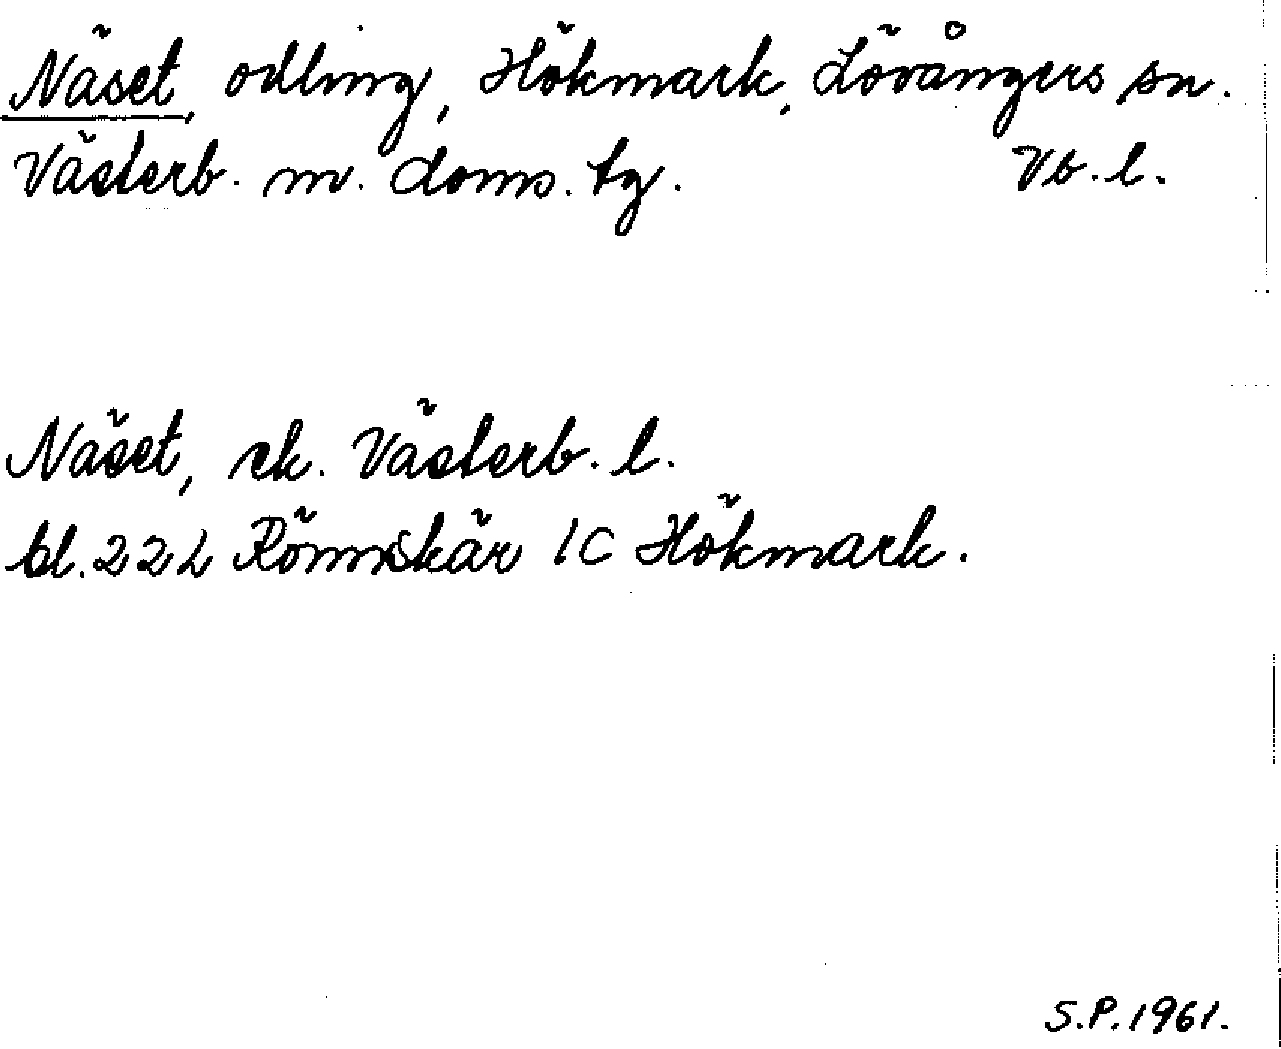 Näset, odling, Hökmark, Lövångers sn.
Västerb. m. doms. tg. Vb. l.
Näset, ek. Västerb. l.
bl. 22L Rönnskär 1C Hökmark.
S.P. 1961.